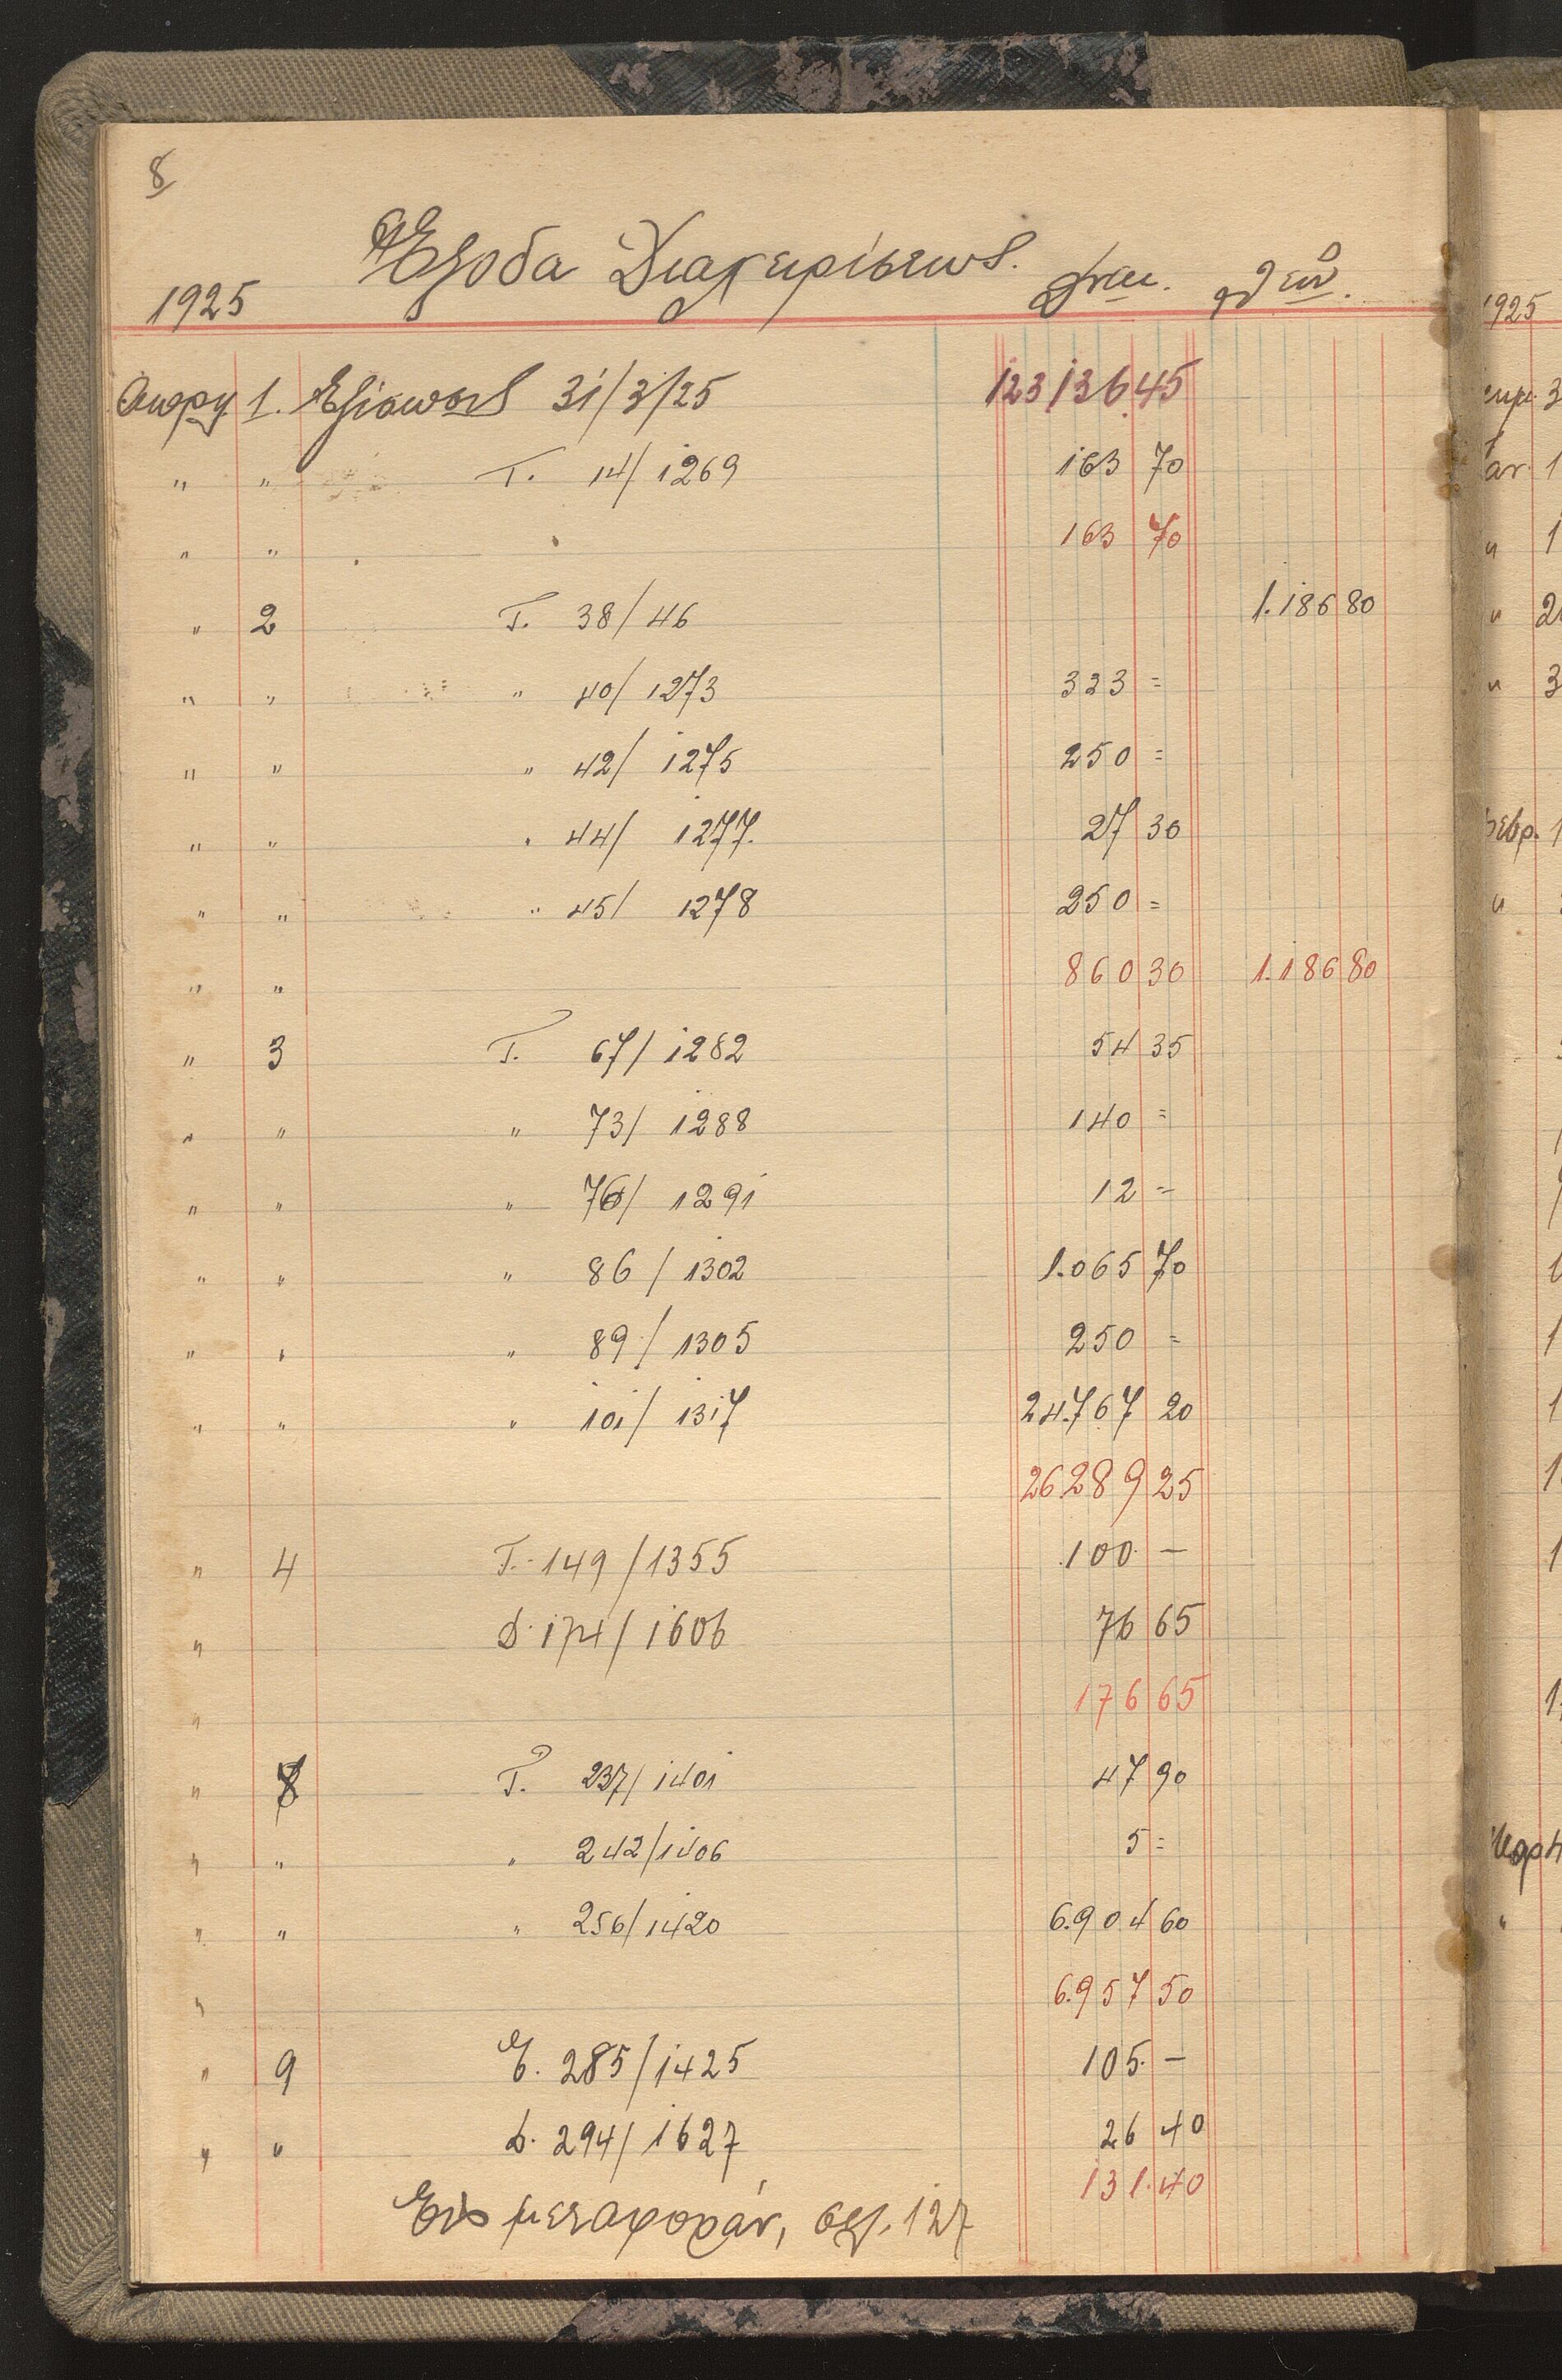 8
Ἔξοδα Διαχειρίσεως.
1925 Δραχ.
Απρ 1. Εξίσωσις 31/3/25 123136.45
" " T. 14/1269 163 70
" " 163 70
" 2 T. 38/46 1.186 80
" " " 40/1273 323 =
" " " 42/1275 250 =
" " " 44/1277. 27 30
" " " 45/1278 250 =
" " 860 30 1.186 80
" 3 T. 67/1282 54 35
" " " 73/1288 140 =
" " " 76/1291 12 =
" " " 86/1302 1.065 70
" " " 89/1305 250 =
" " " 101/1317 24.767 20
26289 25
" 4 T. 149/1355 100. —
" 174/1606 76 65
" 176 65
" 8 T. 237/1401 47 90
" " " 242/1406 5 =
" " " 256/1420 6.904 60
" 6.957 50
" 9 285/1425 105. —
" " 294/1627 26 40
131.40
Εἰς μεταφοράν, σελ. 127
1925